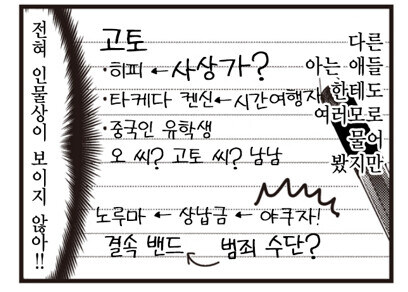 다른
아는 애들
한테도
여러모로
물어
봤지만
고토
·히피 ← 사상가?
·타케다 켄신 ← 시간여행자
·중국인 유학생
오 씨? 고토 씨? 남남
노루마 ← 상납금 ← 야쿠자!
결속 밴드 범죄 수단?
전혀 인물상이 보이지 않아!!